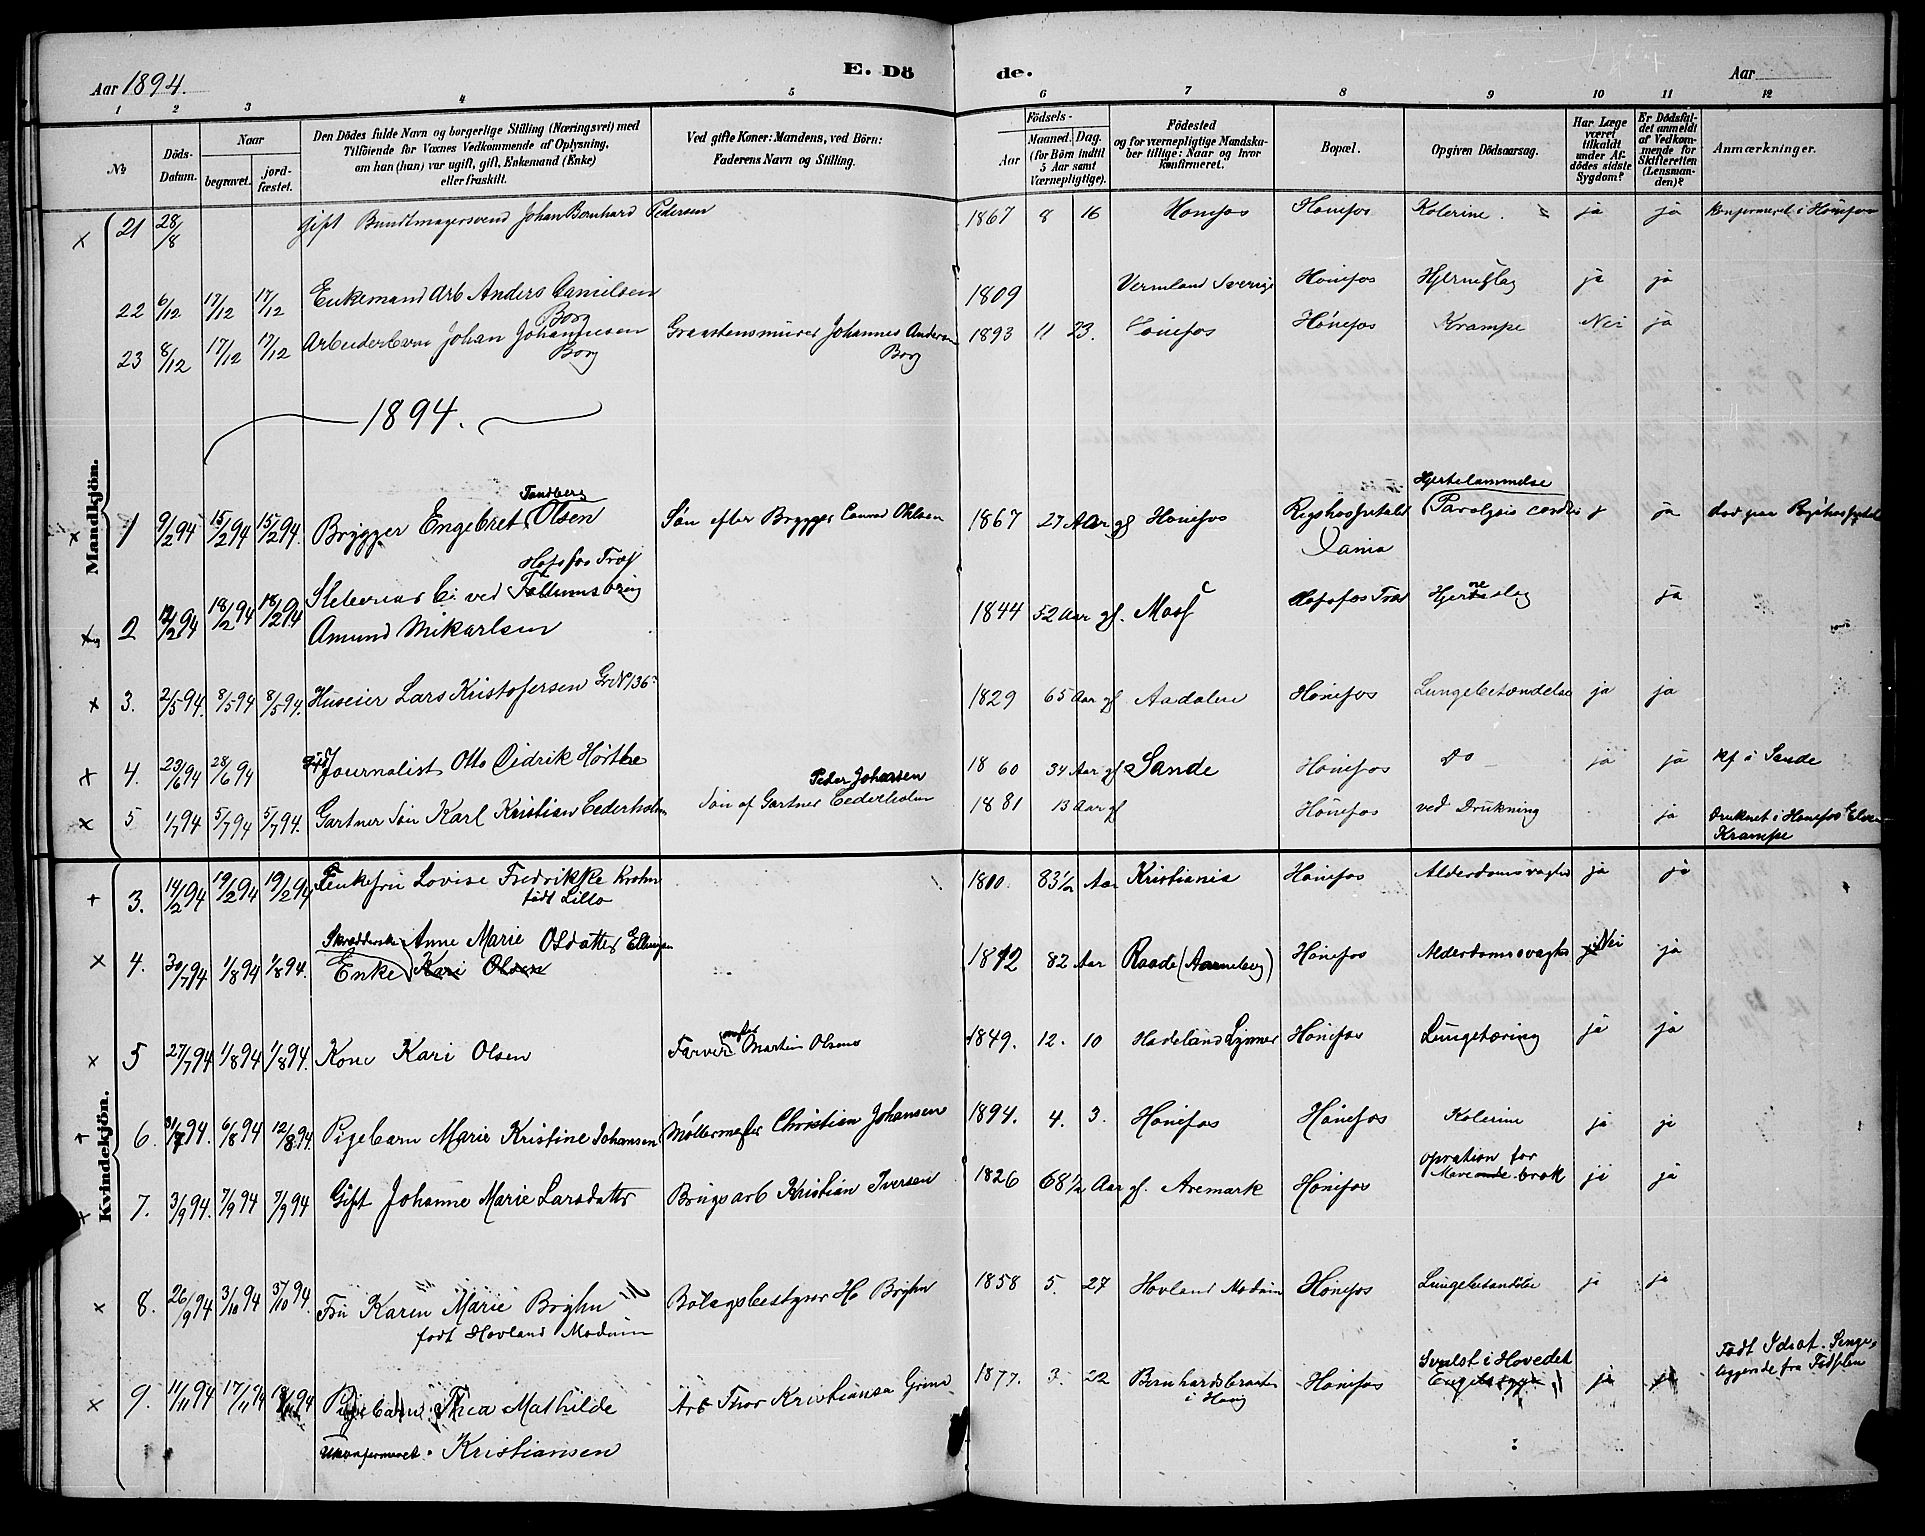 Aar 1894.
E. Dö de.
Aar
1 2 3 4 5 6 7 8 9 10 11 12
No
Döds-Datum.
Naar begravet. jord-fæstet.
Den Dödes fulde Navn og borgerlige Stilling (Næringsvei) med Tilföiende for Voxnes Vedkommende af Oplysning, om han (hun) var ugift, gift, Enkemand (Enke) eller fraskilt.
Ved gifte Koner: Mandens, ved Börn: Faderens Navn og Stilling.
Födsels-
Aar Maaned. Dag. (for Börn indtil 5 Aar samt Værnepligtige).
Födested og for værnepligtige Mandskaber tillige: Naar og hvor konfirmeret.
Bopæl.
Opgiven Dödsaarsag.
Har Læge været tilkaldt under Afdödes sidste Sygdom?
Er Dödsfaldet anmeldt af Vedkommende for Skifteretten (Lensmanden)?
Anmærkninger.
Mandkjön.
x 21 28/8 Gift Bundtmagersvend Johan Bernhard Pedersen 1867 8 16 Hønefos Hønefos Kolerine. ja ja konfirmeret i Hønefos
22 6/12 17/12 17/12 Enkemand Arb Anders Danielsen Borg 1809 Vermland Sverige Hønefos Hjerneslag ja ja
23 8/12 17/12 17/12 Arbeiderbarn Johan Johannesen Borg Graastensmurer Johannes Andersen Borg 1893 11 23. Hønefos Hønefos Krampe Nei ja
1894.
x 1 9/2 94 15/2 94 15/2 94. Brygger Engebret Tandberg Olsen Søn efter Brygger Conrad Ohlsen 1867 27 Aar gl Hønefos Rigshospitalet Xania Hjertelammelse (Paralysis cordis j ja død paa Rigshospital
2 12/2 94 18/2 94 18/2 94 ved Hofsfos Træs Amund Mikarlsen 1844 52 Aar gl. Moss Hofsfos Træs Hjerneslag ja
x 3. 2/5 94. 8/5 94 8/5 94. Huseier Lars Kristofersen Gr No 136 1829 65 Aar gl Aadalen Hønefos Lungebetændelse ja ja
x 4. 23/6 94 28/6 94 Gift Journalist Otto Didrik Høstbe 1860 34 Aar gl Sande Hønefos Do ja ja kf i Sande
x 5 1/7 94 5/7 94 5/7 94. Gartner Søn Karl Kristian Cederholm Søn af Gartner Peder Johansen Cederholm 1881 13 Aar gl Hønefos ved Drukning ja Druknet i Hønefos Elven Krampe
Kvindekjön.
+ 3. 14/2 94 19/2 94 19/2 94 Enkefru Lovise Fredrikke Krohn født Lillo 1810. 83 1/2 Aar Kristiania Hønefos Alderdomsvaghed ja ja
x 4. 30/7 94 1/8 94 1/8 94. Skrædderske Enke Anne Marie Olsdatter Ellingsen Kari Olsen 1812 82 Aar Raade (Aarneberg) Hønefos Alderdomssvaghed ja Nei ja
x 5 27/7 94 1/8 94 1/8 94. Kone Kari Olsen Farvermester Martin Olsens 1849. 12. 10 Hadeland Lynner Hønefos Lungetæring ja ja
+ 6. 31/7 94. 6/8 94 12/8 94. Pigebarn Marie Kristine Johansen Møllermester Christian Johansen 1894. 4. 3. Hønefos Hønefos Kolerine ja ja
x 7. 3/9 94. 7/9 94 7/9 94 Gift Johanne Marie Larsdatter Brugsarb Kristian Iversen 1826 68 1/2 Aar gl. Aremark Hønefos opration for brok ja ja
x 8. 26/9 94 3/10 94 3/10 94. Fru Karen Marie Bryhn født Hovland Modum Bolagsbestyrer H Bryhn 1858 5. 27 Hovland Modum Hønefos Lungebetændelse ja ja
x 9. 11/11 94 17/11 94 Pigebarn Thea Mathilde Ukonfirmeret. Kristiansen Arb Thor Kristiansen Grina 1877. 3. 22 Bernhardsbraaten i Haug Hønefos Svulst i Hovedet Engelsksyge ja ja Født Idiot. Sengeliggende fra Fødslen